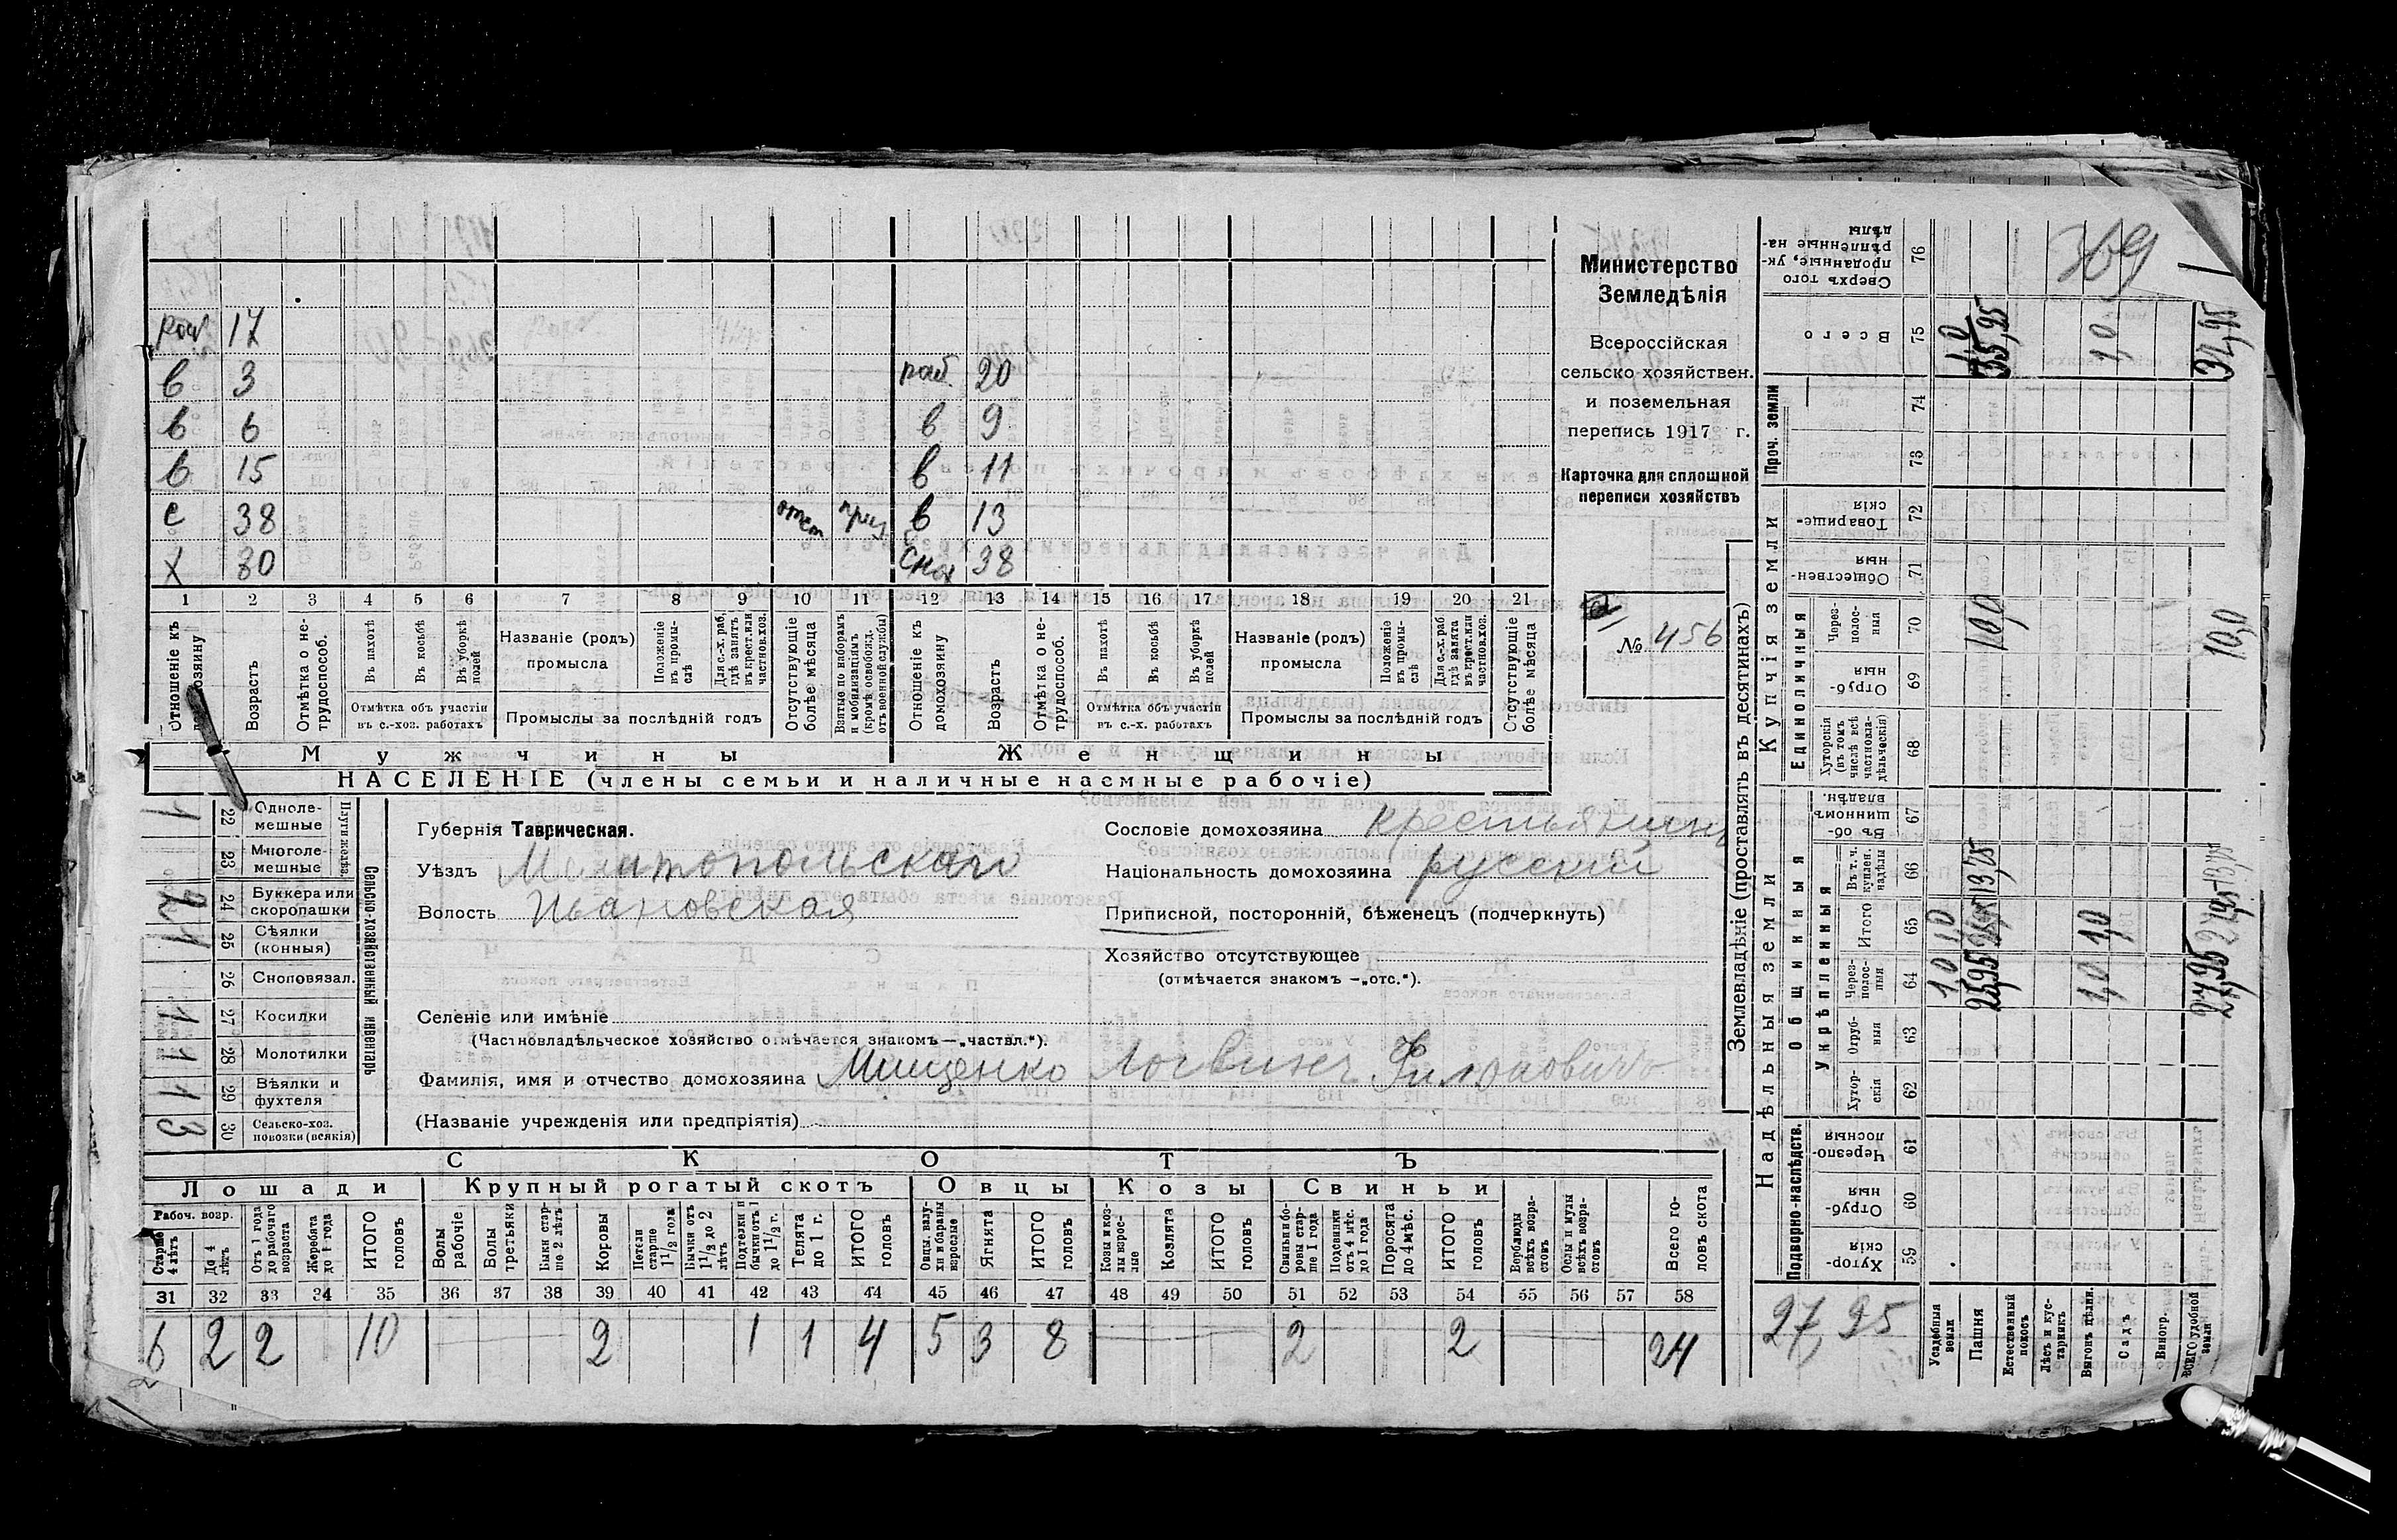 раб 17
в 3 раб. 20
в 6 в 9
в 15 в 11
с 38 отст приз в 13
х 80 снох 38
1 2 3 4 5 6 7 8 9 10 11 12 13 14 15 16 17 18 19 20 21
Отношеніе къ домохозяину
Возрастъ
Отмѣтка о нетрудоспособ.
Въ пахотѣ
Въ косьбѣ
Въ уборкѣ полей
Отмѣтка объ участіи въ с.-хоз. работахъ
Названіе (родъ) промысла
Положеніе въ промыслѣ
Для с.-х. раб. гдѣ занятъ въ крест. или частнов. хоз.
Промыслы за послѣдній годъ
Отсутствующіе болѣе мѣсяца
Взятые по наборамъ и мобилизаціямъ (кромѣ освобожд. отъ военной службы)
Отношеніе къ домохозяину
Возрастъ
Отмѣтка о нетрудоспособ.
Въ пахотѣ
Въ косьбѣ
Въ уборкѣ полей
Отмѣтка объ участіи въ с.-х. работахъ
Названіе (родъ) промысла
Положеніе въ промыслѣ
Для с.-х. раб. гдѣ занята въ крест. или частнов. хоз.
Промыслы за послѣдній годъ
Отсутствующіе болѣе мѣсяца
Мужчины Женщины
НАСЕЛЕНІЕ (члены семьи и наличные наемные рабочіе)
Министерство
Земледѣлія
Всероссійская
сельско хозяйствен.
и поземельная
перепись 1917 г.
Карточка для сплошной
переписи хозяйствъ
№ 456
Сельско-хозяйственный инвентарь
Плуги желѣз.
1 22 Однолемешные
23 Многолемешные
2 24 Буккера или скоропашки
1 25 Сѣялки (конныя)
26 Сноповязал.
1 27 Косилки
1 28 Молотилки
1 29 Вѣялки и фухтеля
3 30 Сельско-хоз. повозки (всякія)
Губернія Таврическая.
Уѣздъ Мелитопольскаго
Волость Ивановская
Сословіе домохозяина крестьянинъ
Національность домохозяина русскій
Приписной, посторонній, бѣженецъ (подчеркнуть)
Хозяйство отсутствующее
(отмѣчается знакомъ —„отс.“).
Селеніе или имѣніе
(Частновладѣльческое хозяйство отмѣчается знакомъ—„частвл.“).
Фамилія, имя и отчество домохозяина Мищенко Логвинъ
(Названіе учрежденія или предпріятія)
СКОТЪ
Лошади Крупный рогатый скотъ Овцы Козы Свиньи
Рабоч. возр.
Старше 4 лѣтъ
До 4 лѣтъ
Отъ 1 года до рабочаго возраста
Жеребята до 1 года
ИТОГО головъ
Волы рабочіе
Волы третьяки
Быки старше 2 лѣтъ
Коровы
Нетели старше 1 1/2 года
Бычки отъ 1 1/2 до 2 лѣтъ
Подтелки и бычки отъ 1 до 1 1/2 г.
Телята до 1 г.
ИТОГО головъ
Овцы, валухи и бараны взрослые
Ягнята
ИТОГО головъ
Козы и козлы взрослые
Козлята
ИТОГО головъ
Свиньи и боровы старше 1 года
Подсвинки отъ 4 мѣс. до 1 года
Поросята до 4 мѣс.
ИТОГО головъ
Верблюды всѣхъ возрастовъ
Ослы и мулы всѣхъ возрастовъ
Всего головъ скота
31 32 33 34 35 36 37 38 39 40 41 42 43 44 45 46 47 48 49 50 51 52 53 54 55 56 57 58
6 2 2 10 2 1 1 4 5 3 8 2 2 24
Землевладѣніе (проставлять въ десятинахъ)
369
Сверхъ того проданные, укрѣпленные надѣлы 76
Всего 75 1,0 35,95 1,0
Проч. земли 74
73
Купчія земли
Товарищескія 72
Общественныя 71
Единоличныя
Черезполосныя 70 10,0 10,0
Отрубныя 69
Хуторскія (въ томъ числѣ всѣ частновладѣльческія) 68
Надѣльныя земли
Общинныя
Въ общинномъ владѣн. 67
Укрѣпленныя
Въ т. ч. куплен. надѣлы 66 13,75
Итого 65 1,0 1,0
Черезполосныя 64 1,0 25,95 1,0 27,95
Отрубныя 63
Хуторскія 62
Подворно-наслѣдств.
Черезполосныя 61
Отрубныя 60
Хуторскія 59
27,95
Усадебныя земли
Пашня
Естественный покосъ
Лѣсъ и кустарникъ
Выгонъ цѣлин.
Садъ
Виногр.
ВСЕГО удобной земли